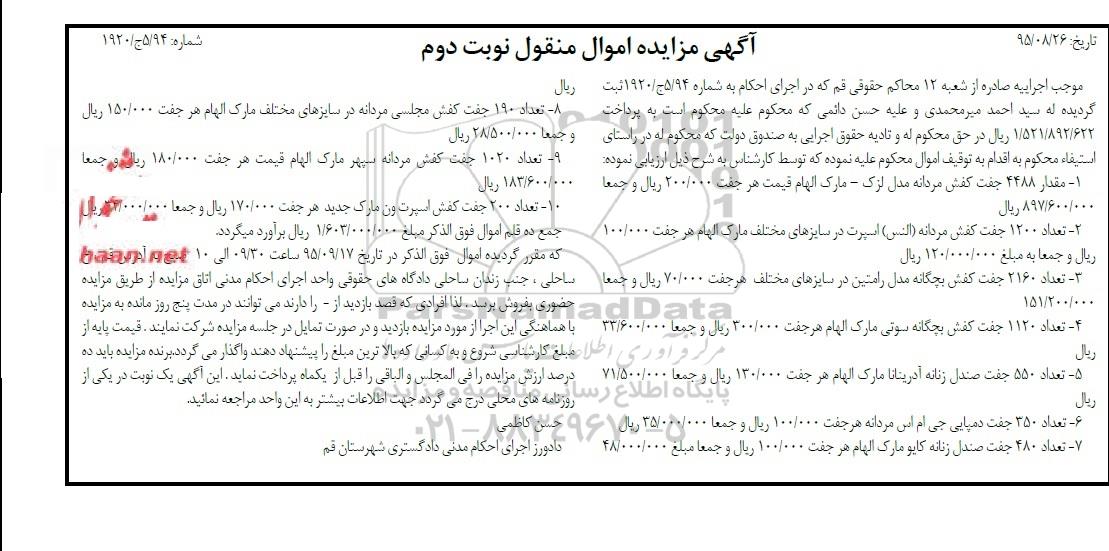 تاریخ: ۹۵/۰۸/۲۶
آگهی مزایده اموال منقول نوبت دوم
شماره: ۵/۹۴ج/۱۹۲۰
موجب اجراییه صادره از شعبه ۱۲ محاکم حقوقی قم که در اجرای احکام به شماره ۵/۹۴ج/۱۹۲۰ثبت
گردیده له سید احمد میرمحمدی و علیه حسن دائمی که محکوم علیه محکوم است به پرداخت
۱/۵۲۱/۸۹۲/۶۲۲ ریال در حق محکوم له و تادیه حقوق اجرایی به صندوق دولت که محکوم له در راستای
استیفاء محکوم به اقدام به توقیف اموال محکوم علیه نموده که توسط کارشناس به شرح ذیل ارزیابی نموده:
۱- مقدار ۴۴۸۸ جفت کفش مردانه مدل لزک – مارک الهام قیمت هر جفت ۲۰۰/۰۰۰ ریال و جمعا
۸۹۷/۶۰۰/۰۰۰ ریال
۲- تعداد ۱۲۰۰ جفت کفش مردانه (النس) اسپرت در سایزهای مختلف مارک الهام هر جفت ۱۰۰/۰۰۰
ریال و جمعا به مبلغ ۱۲۰/۰۰۰/۰۰۰ ریال
۳- تعداد ۲۱۶۰ جفت کفش بچگانه مدل رامتین در سایزهای مختلف هرجفت ۷۰/۰۰۰ ریال و جمعا
۱۵۱/۲۰۰/۰۰۰
۴- تعداد ۱۱۲۰ جفت کفش بچگانه سوتی مارک الهام هرجفت ۳۰۰/۰۰۰ ریال و جمعا ۳۳/۶۰۰/۰۰۰
ریال
۵- تعداد ۵۵۰ جفت صندل زنانه آدرینانا مارک الهام هر جفت ۱۳۰/۰۰۰ ریال و جمعا ۷۱/۵۰۰/۰۰۰
ریال
۶- تعداد ۳۵۰ جفت دمپایی جی ام اس مردانه هرجفت ۱۰۰/۰۰۰ ریال و جمعا ۳۵/۰۰۰/۰۰۰ ریال
۷- تعداد ۴۸۰ جفت صندل زنانه کایو مارک الهام هر جفت ۱۰۰/۰۰۰ ریال و جمعا مبلغ ۴۸/۰۰۰/۰۰۰
ریال
۸- تعداد ۱۹۰ جفت کفش مجلسی مردانه در سایزهای مختلف مارک الهام هر جفت ۱۵۰/۰۰۰ ریال
و جمعا ۲۸/۵۰۰/۰۰۰ ریال
۹- تعداد ۱۰۲۰ جفت کفش مردانه سپهر مارک الهام قیمت هر جفت ۱۸۰/۰۰۰ ریال و جمعا
۱۸۳/۶۰۰/۰۰۰ ریال
۱۰- تعداد ۲۰۰ جفت کفش اسپرت ون مارک جدید هر جفت ۱۷۰/۰۰۰ ریال و جمعا ۳۴/۰۰۰/۰۰۰ ریال
جمع ده قلم اموال فوق الذکر مبلغ ۱/۶۰۳/۰۰۰/۰۰۰ ریال برآورد میگردد.
که مقرر گردیده اموال فوق الذکر در تاریخ ۹۵/۰۹/۱۷ ساعت ۰۹/۳۰ الی ۱۰
ساحلی ، جنب زندان ساحلی دادگاه های حقوقی واحد اجرای احکام مدنی اتاق مزایده از طریق مزایده
حضوری بفروش برسد . لذا افرادی که قصد بازدید از - را دارند می توانند در مدت پنج روز مانده به مزایده
با هماهنگی این اجرا از مورد مزایده بازدید و در صورت تمایل در جلسه مزایده شرکت نمایند . قیمت پایه از
مبلغ کارشناسی شروع و به کسانی که بالا ترین مبلغ را پیشنهاد دهند واگذار می گردد.برنده مزایده باید ده
درصد ارزش مزایده را فی المجلس و الباقی را قبل از یکماه پرداخت نماید . این آگهی یک نوبت در یکی از
روزنامه های محلی درج می گردد جهت اطلاعات بیشتر به این واحد مراجعه نمائید.
حسن کاظمی
دادورز اجرای احکام مدنی دادگستری شهرستان قم
haan.net
ParsNamadData
پایگاه اطلاع رسانی مناقصه و مزایده
۰۲۱-۸۸۳۴۹۶۷۰-۵